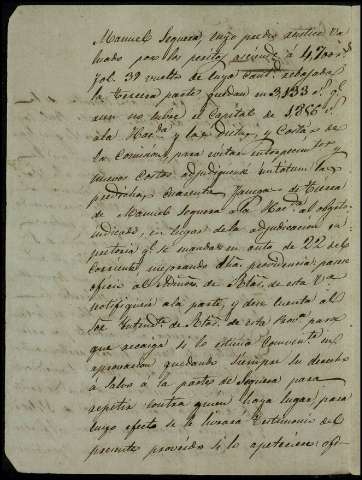 Manuel Seguera, cuyo predio rustico va
luado por los peritos asciende á 4,700 r.s
fol. 39 vuelto de cuya cant.d rebajada
la tercera parte quedan en 3,133 r.s q.e
aun no cubre el Capital de
á la Hac.da y las Dietas y Costas de
la Comision, para evitar entorpecimientos y
nuevas Costas adjudiquense in totum las
predichas cuarenta fanegas de tierra
de Manuel Seguera á la Hac.da al objeto
indicado, en lugar de la adjudicacion in
q.e se mandó en auto de 22 del
corriente, mejorando dha providencia: pase
oficio al Admor. de Rtas. de esta V.a
notifiquese á la parte, y dese cuenta al
Sor. Intend.te de Rtas. de esta Prov.a para
que recaiga si lo estima Conven.te su
aprovacion quedando siempre su derecho
á salvo á la parte de Seguera para
repetir contra quien haya lugar, para
cuyo efecto se le librará testimonio del
presente proveido si lo apeteciere: ofi-